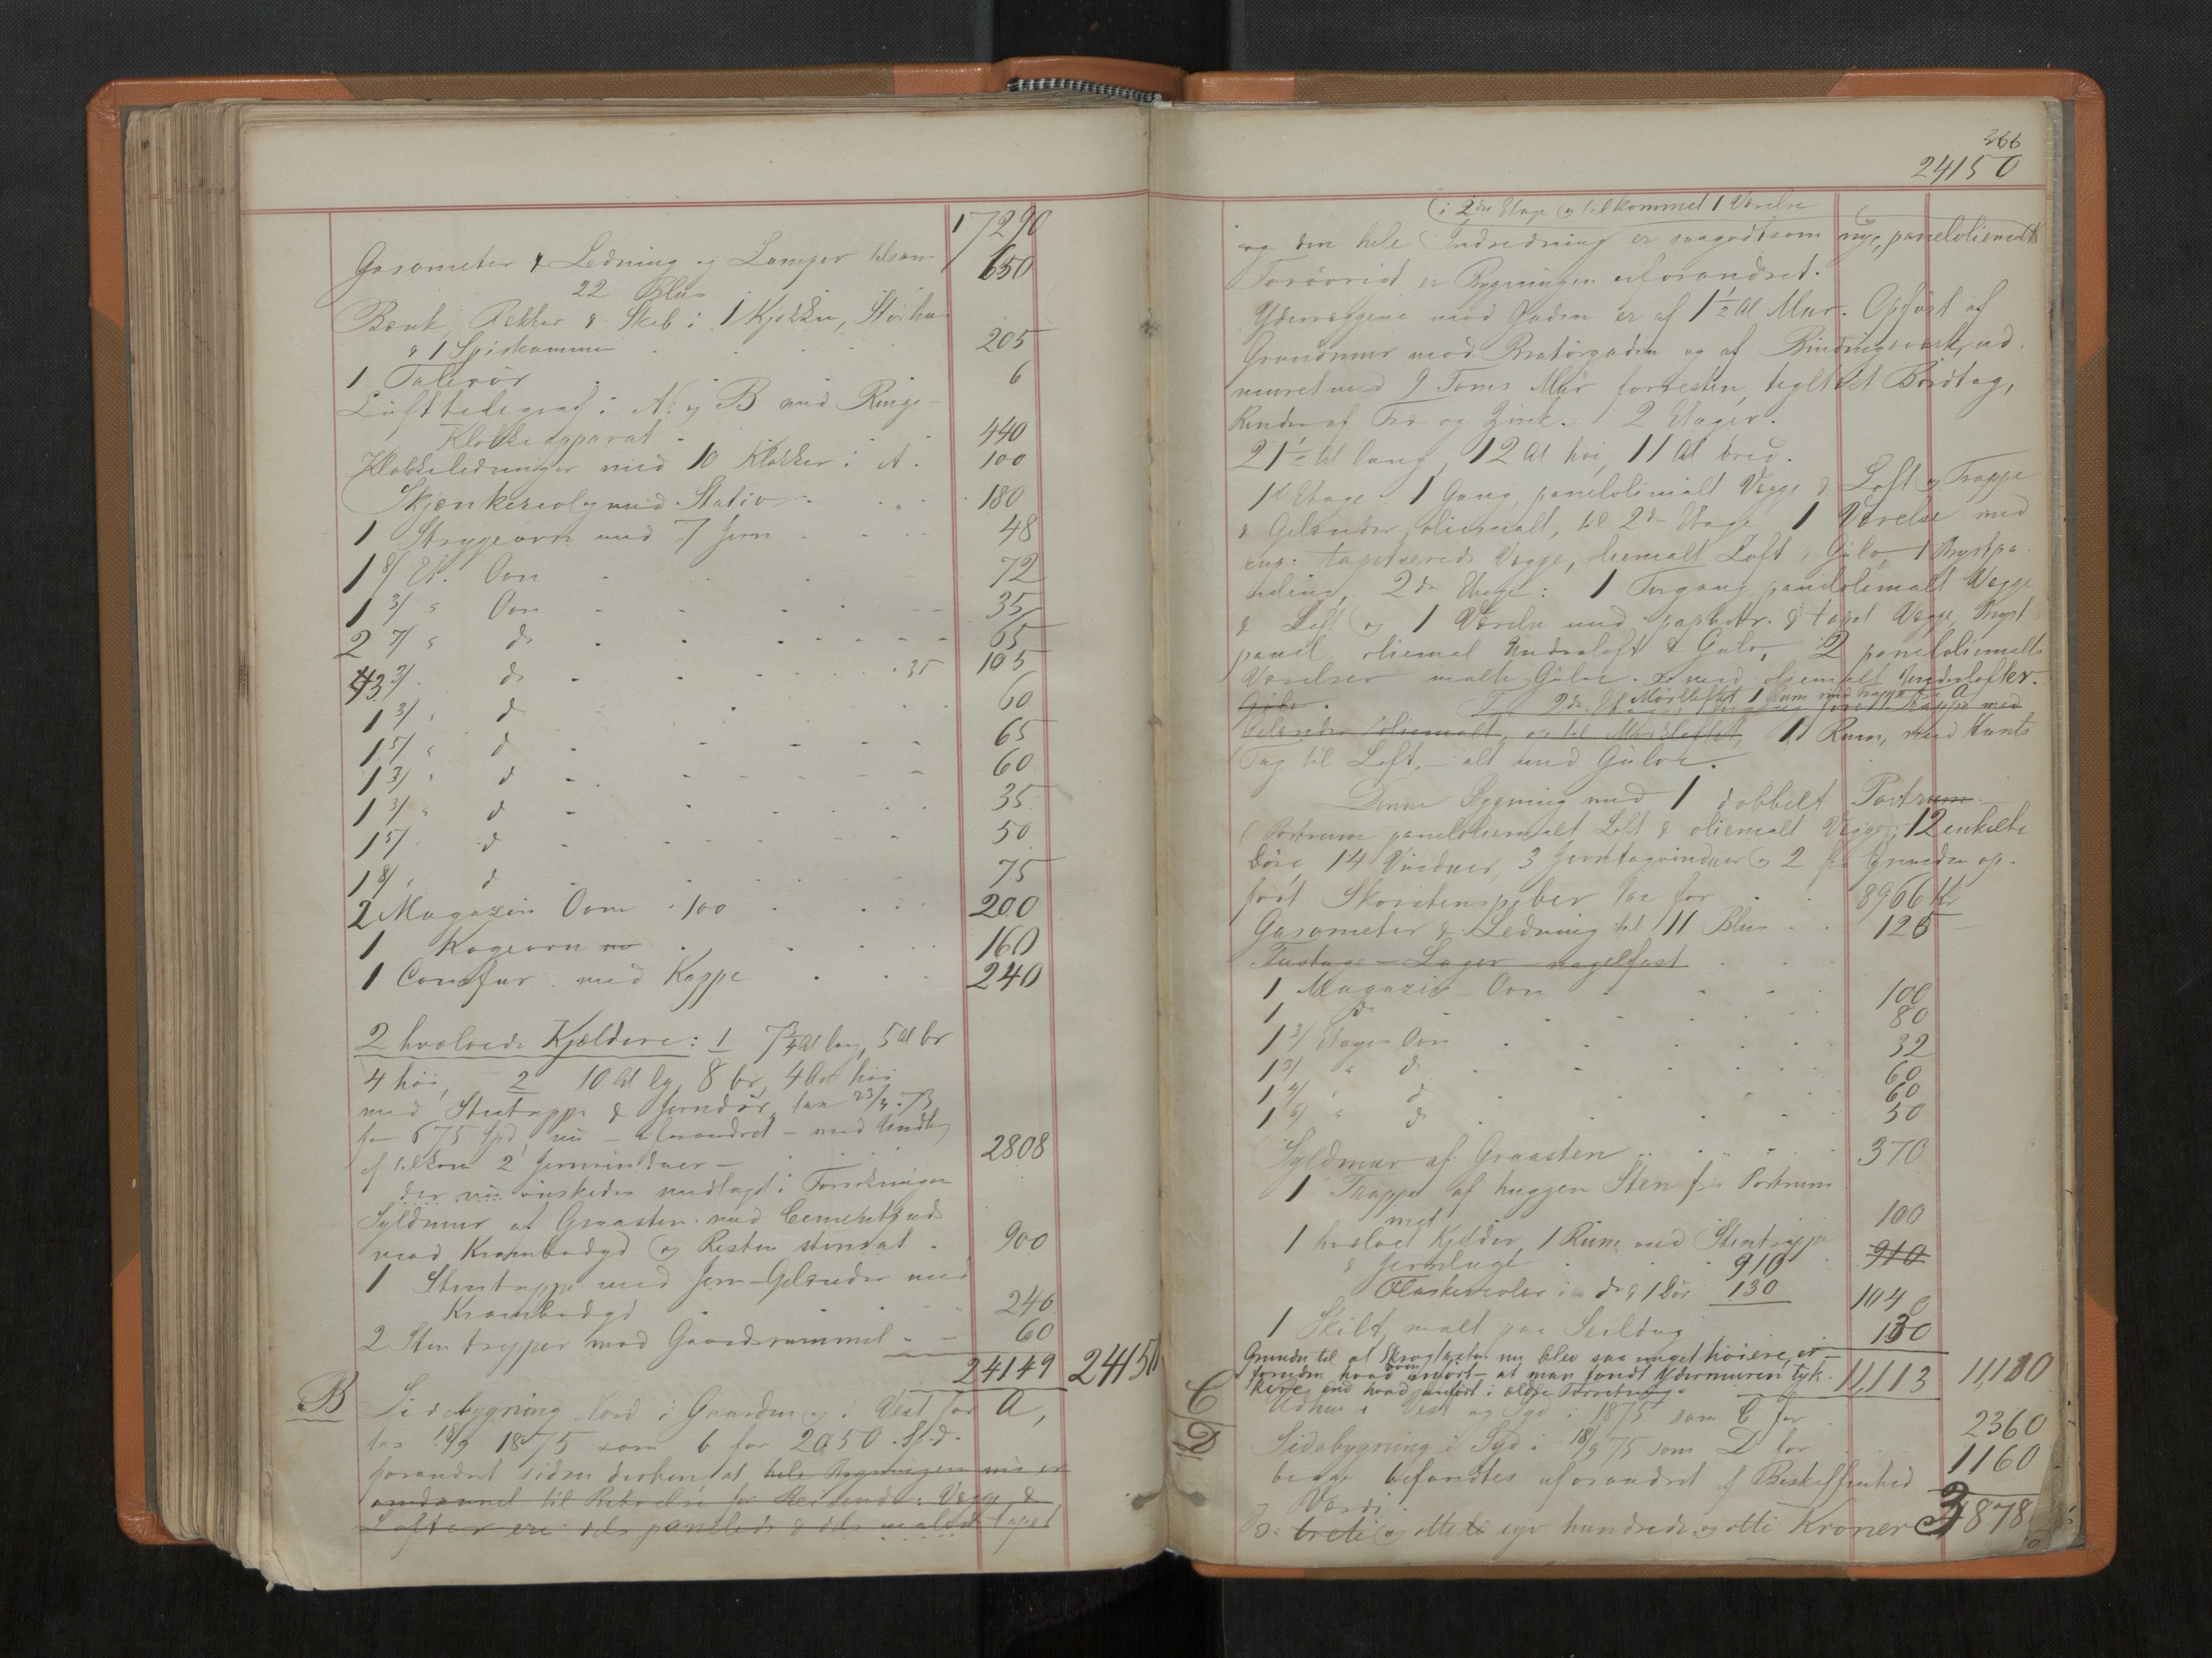 17290
Gasometer & Ledning og Lamper tilsam
22 Blus 650
Bænk, Rækker & Skab i 1 Kjøkken, Størhus
& 1 Spiskammer 205
1 Talerør 6
Lufttelegraf i A. og B med Ringe-
Klokkeapparat 440
Klokkeledninger med 10 Klokker i A. 100
Skjænkereol med Stativ 180
1 Strygeovn med 7 Jern 48
1 8/ Et. Ovn 72
1 3/ " Ovn 35
2 7/ " do 65
3 3/ " do 35 105
1 3/ " d 60
1 5/ " d 65
1 3/ " d 60
1 3/ " d 35
1 5/ " d 50
1 8/ " d 75
2 Magazin Ovne 100 200
1 Kogeovn 160
1 Comfur med Kappe 240
2 hvælvede Kjældere: 1 7 3/4 Al lang, 5 Al br
4 høi, 2 10 Al lg, 8 br, 4 Al høi
med Stentrappe & Jerndør, tax 23/4 73
for 675 Spd, nu uforandret med Undt
af tilkom 2 Jernvinduer 2808
der nu ønskedes medtaget i Forsikringen
Syldmur af Graasten med Cementpuds
mod Krambodgd og Resten stensat 900
1 Stentrappe med Jern-Gelænder med
Krambodgd 240
2 Stentrapper mod Gaardsrummet 60
24149 24150
B Sidebygning Nord i Gaarden og i Vest for A,
tax 18/9 1875 som b for 2050 Spd.
forandret siden derhen at hele Bygningen nu er
omdannet til Beboelse for Reisende: Vægge &
Lofter ere dels panelede & dels malede tapet
366
24150
(i 2den Etage og tilkommet 1 Værelse
og den hele Indredning er saagodtsom ny, paneloliemalt
Forøvrigt er Bygningen uforandret.
Ydervæggene mod Gaden er af 1 1/2 Al Mur. Opført af
Grundmur mod Bratørgaden og af Bindingsværk, ud-
muret med 9 Toms Mur forresten, teglhet Bordtag,
Render af Træ og Zink. 2 Etager.
21 1/2 Al lang, 12 Al høi, 11 Al bred.
1st Etage: 1 Gang, paneloliemalt Vægge & Loft og Trappe
& Gelænder oliemalt, til 2den Etage, 1 Værelse med
tapetserede Vægge, oliemalt Loft & Gulv, 1 Brystpa-
neling, 2den Etage: 1 Forgang paneloliemalt Vægge
& Loft og 1 Værelse med papbetr. & tapet Vægge, Bryst
panel oliemal Underloft & Gulv, 2 paneloliemalte
Værelser malte Gulve med oliemalt Underlofter.
Gulv. Fra 2den Et Mørkloftet 1 Rum med Trappe fra A
Gelænder oliemalt, og til Mørkloftet, 1 Rum, med
Tag til Loft, alt med Gulve.
Denne Bygning med 1 dobbelt Portrum
(Portrum paneloliemalt Loft & oliemalt Vægge), 12 enkelte
Døre, 14 Vinduer, 3 Jerntagvinduer og 2 fra Grunden op-
ført Skorstenspiber tax for 8966 Kr
Gasometer & Ledning til 11 Blus 125
Fustage - Lager nagelfast
1 Magazin Ovn 100
1 do 80
1 3/ Etages Ovn 32
1 3/ " d 60
1 4/ " d 60
1 6/ " do 50
Syldmur af Graasten 370
1 Trappe af huggen Sten fra Portrum
100
1 hvælvet Kjelder, 1 Rum med Stentrappe
& Jernluge 910 910
Flaskereoler i do & 1 Dør 130 1040
1 Skilt, malt paa Seildug 130
Grunden til at Skrogtaxten nu blev saa meget høiere, er
foruden hvad oven anført - at man fandt Ydermuren tyk-
kere end hvad anført i ældre Forretning 11,113 11,110
C Udhus i Vest og Syd i 1875 som C for 2360
D Sidebygning i Syd i 18/9 75 som D for 1160
begge befandtes uforandret af Beskaffenhed
og Værdi.
treti og otte ti syv hundrede og otti Kroner 38780